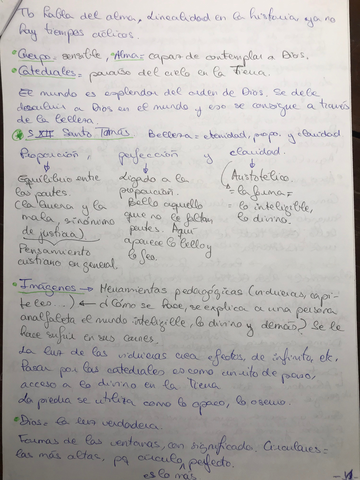 Tb habla del alma, Linealidad en la historia, ya no
hay tiempos cíclicos.
Cuerpo: sensible, Alma = capaz de contemplar a Dios.
Catedrales = paraíso del cielo en la Tierra.
El mundo es esplendor del orden de Dios. Se debe
descubrir a Dios en el mundo y eso se consigue a través
de la belleza.
S. XIII Santo Tomás. Belleza = eternidad, propo. y claridad
Proporción, perfección y claridad.
Equilibrio entre
las partes.
(la buena y la
mala, sinónimo
de justicia)
Pensamiento
cristiano en general.
Ligado a la
proporción.
Bello aquello
que no le faltan
partes. Aquí
aparece lo bello y
lo feo.
(Aristotélico
la forma =
lo inteligible,
lo divino.
Imágenes → Herramientas pedagógicas (vidrieras, capi-
teles...) ← ¿Cómo se hace, se explica a una persona
analfabeta el mundo inteligible, lo divino y demás? Se le
hace sufrir en sus carnes.
La luz de las vidrieras crea efectos, de infinito, etc.
Pasar por las catedrales es como un rito de paso,
acceso a lo divino en la Tierra
La piedra se utiliza como lo opaco, lo oscuro.
Dios = La luz verdadera.
Formas de las ventanas, con significado. Circulares =
las más altas, pq círculo perfecto.
es lo más